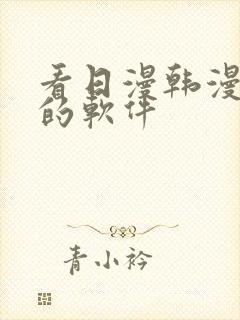 看日漫韩漫
的軟件
青小衿